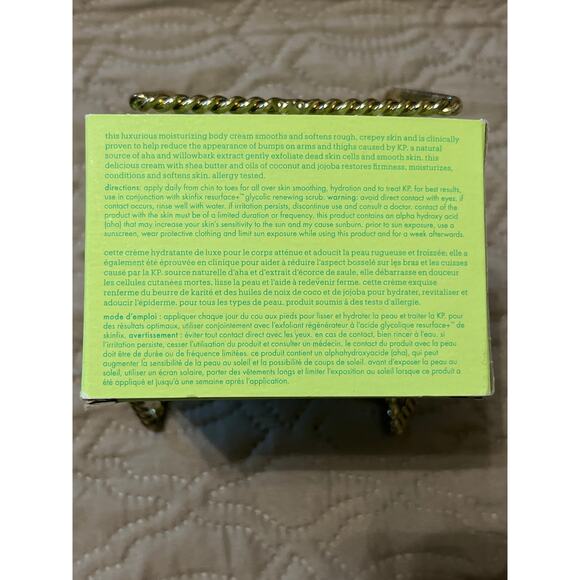 this luxurious moisturizing body cream smooths and softens rough, crepey skin and is clinically
proven to help reduce the appearance of bumps on arms and thighs caused by KP. a natural
source of aha and willowbark extract gently exfoliate dead skin cells and smooth skin. this
delicious cream with shea butter and oils of coconut and jojoba restores firmness, moisturizes,
conditions and softens skin. allergy tested.
directions: apply daily from chin to toes for all over skin smoothing, hydration and to treat KP. for best results,
use in conjunction with skinfix resurface+™ glycolic renewing scrub. warning: avoid direct contact with eyes. if
contact occurs, rinse well with water. if irritation persists, discontinue use and consult a doctor. contact of the
product with the skin must be of a limited duration or frequency. this product contains an alpha hydroxy acid
(aha) that may increase your skin's sensitivity to the sun and my cause sunburn. prior to sun exposure, use a
sunscreen, wear protective clothing and limit sun exposure while using this product and for a week afterwards.
cette crème hydratante de luxe pour le corps atténue et adoucit la peau rugueuse et froissée; elle a
également été éprouvée en clinique pour aider à réduire l'aspect bosselé sur les bras et les cuisses
causé par la KP. source naturelle d'aha et d'extrait d'écorce de saule, elle débarrasse en douceur
les cellules cutanées mortes, lisse la peau et l'aide à redevenir ferme. cette crème exquise
renferme du beurre de karité et des huiles de noix de coco et de jojoba pour hydrater, revitaliser et
adoucir l'épiderme. pour tous les types de peau. produit soumis à des tests d'allergie.
mode d'emploi : appliquer chaque jour du cou aux pieds pour lisser et hydrater la peau et traiter la KP. pour
des résultats optimaux, utiliser conjointement avec l'exfoliant régénérateur à l'acide glycolique resurface+™ de
skinfix. avertissement : éviter tout contact direct avec les yeux. en cas de contact, bien rincer à l'eau. si
l'irritation persiste, cesser l'utilisation du produit et consulter un médecin. le contact du produit avec la peau
doit être de durée ou de fréquence limitées. ce produit contient un alphahydroxyacide (aha), qui peut
augmenter la sensibilité de la peau au soleil et la possibilité de coups de soleil. avant d'exposer la peau au
soleil, utiliser un écran solaire, porter des vêtements longs et limiter l'exposition au soleil lorsque ce produit a
été appliqué et jusqu'à une semaine après l'application.